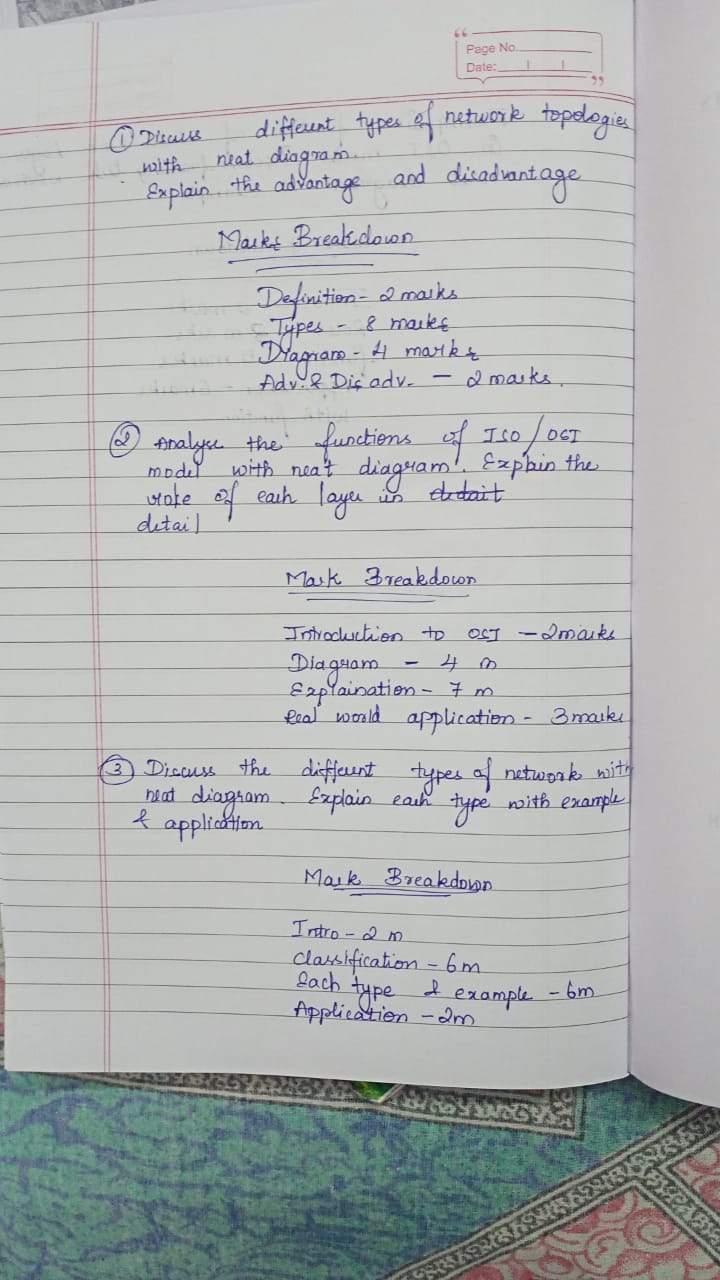 Page No.
Date:
① Discuss different types of network topologies
with neat diagram.
Explain the advantage and disadvantage
Marks Breakdown
Definition - 2 marks
Types - 8 marks
Diagram - 4 marks
Adv. & Disadv. - 2 marks.
② Analyse the functions of ISO/OSI
model with neat diagram. Explain the
role of each layer in detait
detail
Mark Breakdown
Introduction to OSI - 2marks
Diagram - 4 m
Explaination - 7 m
Real world application - 3marks
③ Discuss the different types of network with
neat diagram. Explain each type with example
& application
Mark Breakdown
Intro - 2 m
Classification - 6m
Each type & example - 6m
Application - 2m